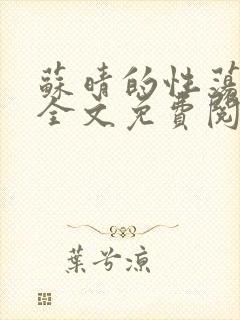 蘇晴的性蕩
全文免費閱
葉兮涼